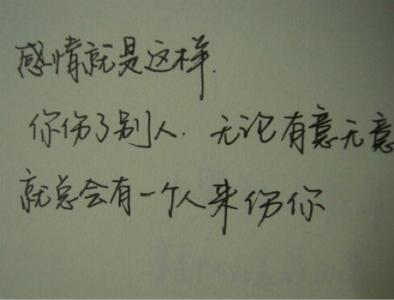 感情就是这样.
你伤了别人.无论有意无意
就总会有一个人来伤你